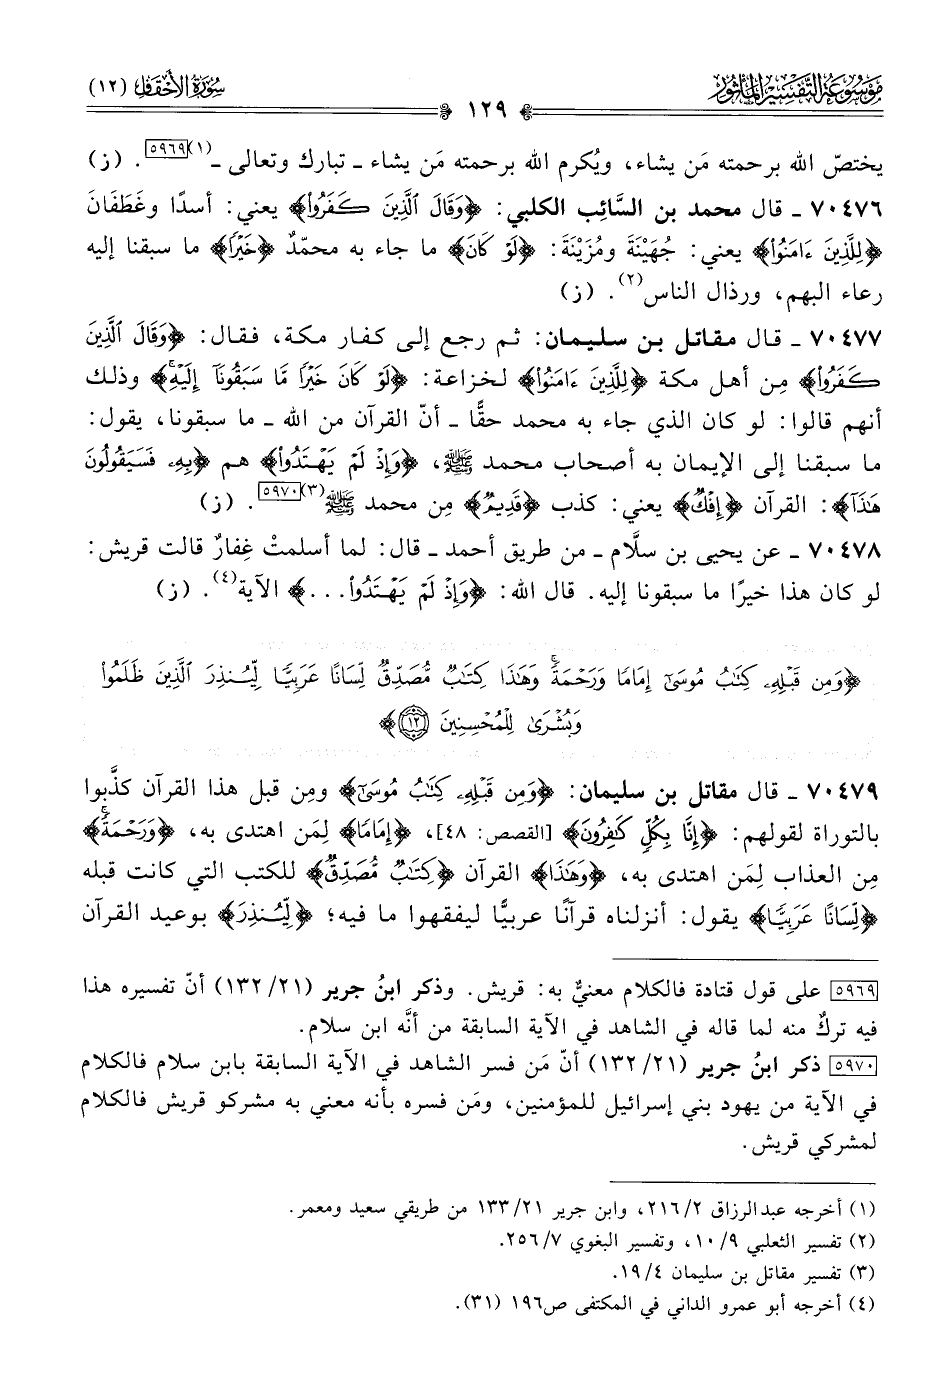 موسوعة التفسير المأثور
سورة الأحقاف (١٢)
١٢٩
يختصّ الله برحمته مَن يشاء، ويُكرم الله برحمته مَن يشاء ـ تبارك وتعالى ـ(١)[٥٩٦٩]. (ز)
٧٠٤٧٦ ـ قال محمد بن السَّائِب الكلبي: ﴿وَقَالَ ٱلَّذِينَ كَفَرُواْ﴾ يعني: أسدًا وغَطَفَانَ
﴿لِلَّذِينَ ءَامَنُواْ﴾ يعني: جُهَيْنَةَ ومُزَيْنَةَ: ﴿لَوْ كَانَ﴾ ما جاء به محمّدٌ ﴿خَيْرًا﴾ ما سبقنا إليه
رعاء البهم، ورذال الناس(٢). (ز)
٧٠٤٧٧ ـ قال مقاتل بن سليمان: ثم رجع إلى كفار مكة، فقال: ﴿وَقَالَ ٱلَّذِينَ
كَفَرُواْ﴾ مِن أهل مكة ﴿لِلَّذِينَ ءَامَنُواْ﴾ لخزاعة: ﴿لَوْ كَانَ خَيْرًا مَّا سَبَقُونَآ إِلَيْهِۚ﴾ وذلك
أنهم قالوا: لو كان الذي جاء به محمد حقًّا ـ أنّ القرآن من الله ـ ما سبقونا، يقول:
ما سبقنا إلى الإيمان به أصحاب محمد ﷺ، ﴿وَإِذْ لَمْ يَهْتَدُواْ﴾ هم ﴿بِهِۦ فَسَيَقُولُونَ
هَٰذَآ﴾: القرآن ﴿إِفْكٌ﴾ يعني: كذب ﴿قَدِيمٌ﴾ مِن محمد ﷺ(٣)[٥٩٧٠]. (ز)
٧٠٤٧٨ ـ عن يحيى بن سلَّام ـ من طريق أحمد ـ قال: لما أسلمتْ غِفارٌ قالت قريش:
لو كان هذا خيرًا ما سبقونا إليه. قال الله: ﴿وَإِذْ لَمْ يَهْتَدُواْ...﴾ الآية(٤). (ز)
﴿وَمِن قَبْلِهِۦ كِتَٰبُ مُوسَىٰٓ إِمَامًا وَرَحْمَةًۚ وَهَٰذَا كِتَٰبٌ مُّصَدِّقٌ لِّسَانًا عَرَبِيًّا لِّيُنذِرَ ٱلَّذِينَ ظَلَمُواْ
وَبُشْرَىٰ لِلْمُحْسِنِينَ ١٢﴾
٧٠٤٧٩ ـ قال مقاتل بن سليمان: ﴿وَمِن قَبْلِهِۦ كِتَٰبُ مُوسَىٰٓ﴾ ومِن قبل هذا القرآن كذَّبوا
بالتوراة لقولهم: ﴿إِنَّا بِكُلٍّ كَٰفِرُونَ﴾ [القصص: ٤٨]، ﴿إِمَامًا﴾ لِمَن اهتدى به، ﴿وَرَحْمَةًۚ﴾
مِن العذاب لِمَن اهتدى به، ﴿وَهَٰذَا﴾ القرآن ﴿كِتَٰبٌ مُّصَدِّقٌ﴾ للكتب التي كانت قبله
﴿لِّسَانًا عَرَبِيًّا﴾ يقول: أنزلناه قرآنًا عربيًّا ليفقهوا ما فيه؛ ﴿لِّيُنذِرَ﴾ بوعيد القرآن
[٥٩٦٩] على قول قتادة فالكلام معنيٌّ به: قريش. وذكر ابنُ جرير (٢١/ ١٣٢) أنّ تفسيره هذا
فيه تركٌ منه لما قاله في الشاهد في الآية السابقة من أنَّه ابن سلام.
[٥٩٧٠] ذكر ابنُ جرير (٢١/ ١٣٢) أنّ مَن فسر الشاهد في الآية السابقة بابن سلام فالكلام
في الآية من يهود بني إسرائيل للمؤمنين، ومَن فسره بأنه معني به مشركو قريش فالكلام
لمشركي قريش.
(١) أخرجه عبدالرزاق ٢/ ٢١٦، وابن جرير ٢١/ ١٣٣ من طريقي سعيد ومعمر.
(٢) تفسير الثعلبي ٩/ ١٠، وتفسير البغوي ٧/ ٢٥٦.
(٣) تفسير مقاتل بن سليمان ٤/ ١٩.
(٤) أخرجه أبو عمرو الداني في المكتفى ص١٩٦ (٣١).